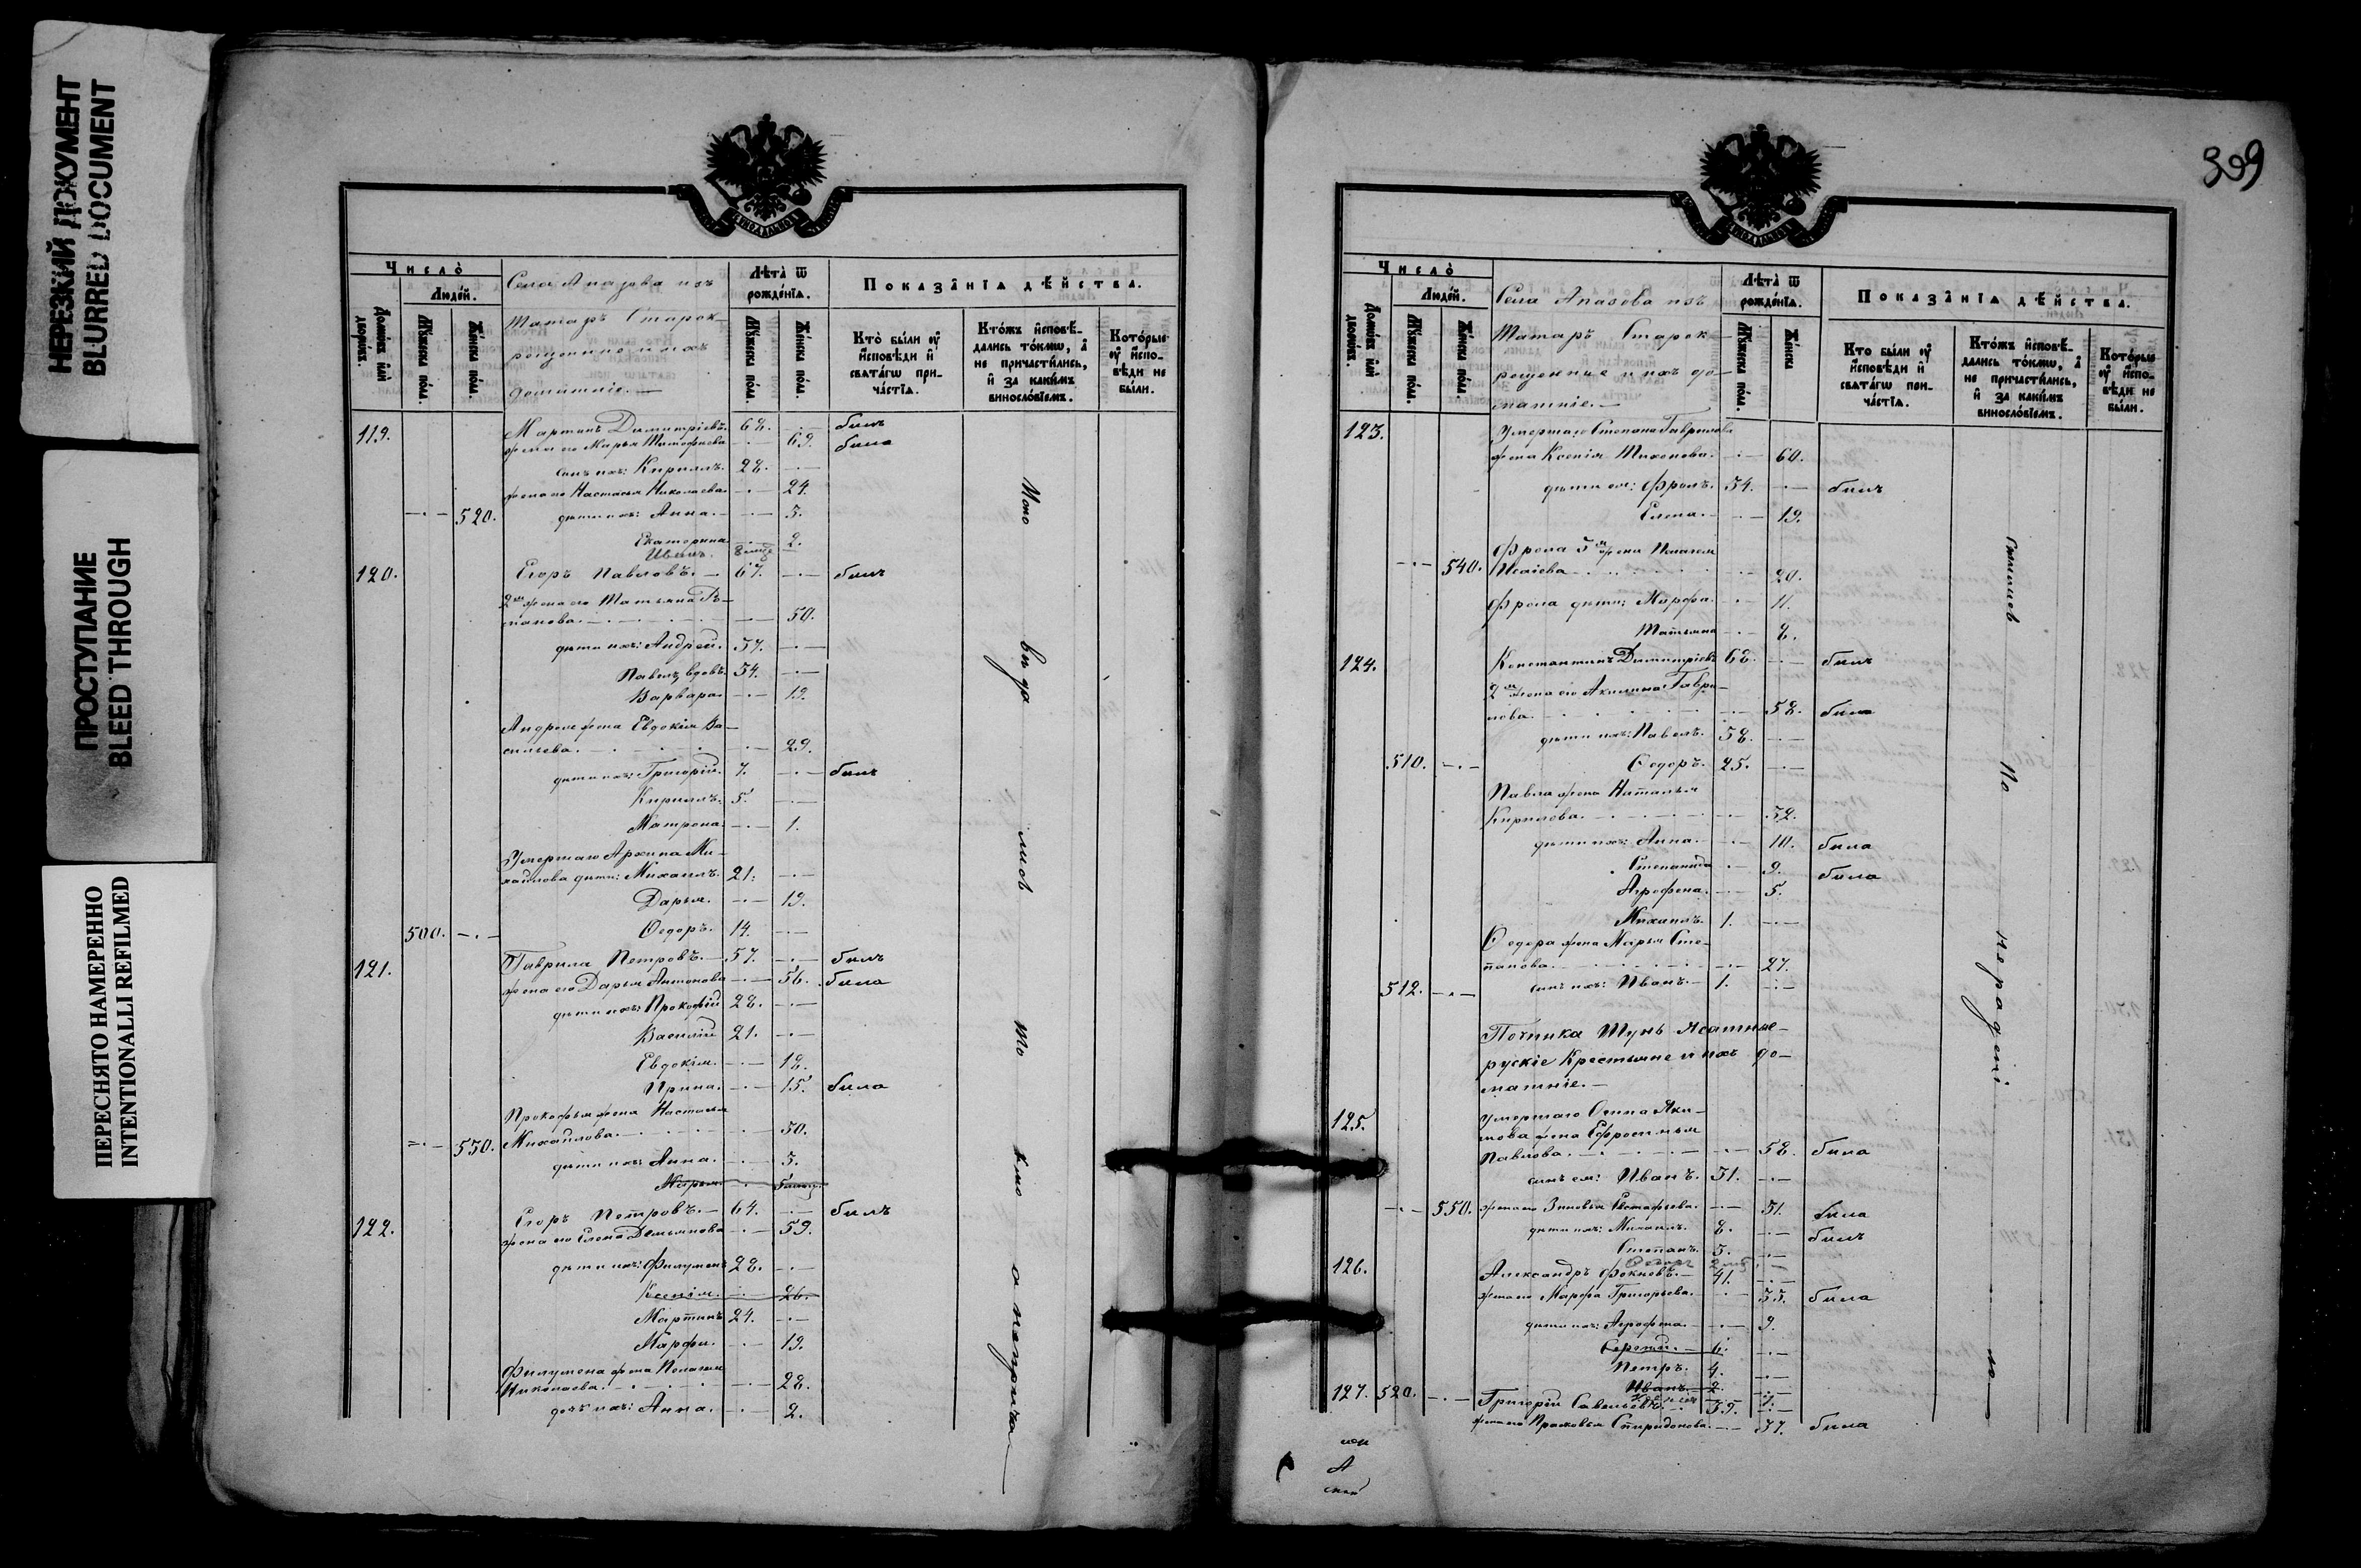 НЕРЕЗКИЙ ДОКУМЕНТ
BLURRED DOCUMENT
ПРОСТУПАНИЕ
BLEED THROUGH
ПЕРЕСНЯТО НАМЕРЕННО
INTENTIONALLI REFILMED
Число
Людей.
Мужеска пола.
Женска пола.
Села Апазова изъ
Татаръ Старок-
рещенные и ихъ
домашніе.—
Лѣта ѿ рожденія.
Мужеска пола.
Женска пола.
Показанія дѣйства.
Кто были оу исповѣди и святагѡ причастія.
Ктожъ исповѣдались токмѡ, а не причастились, и за какимъ винословіемъ.
Которые оу исповѣди не были.
119. Мартинъ Димитріевъ. 68. былъ
жена его Марья Тимофеева 69. была
сынъ ихъ: Кириллъ. 28.
жена его Настасья Николаева 24.
520. дѣти ихъ: Анна. 5.
Екатерина 2.
120. Егоръ Павловъ.— 67. былъ
2я жена его Татьяна
50.
дѣти ихъ: Андрей. 37.
Павелъ вдовъ. 34.
Варвара 19.
Андрея жена Евдокія Ва-
сильева. 29.
дѣти ихъ: Григорій. 7. былъ
Кириллъ. 5.
Матрена 1.
Умершаго Архипа Ми-
хайлова дѣти: Михаилъ. 21.
Дарья. 19.
500. Ѳедоръ. 14.
121. Гаврила Петровъ.— 57. былъ
жена его Дарья Антонова 56. была
дѣти ихъ: Прокофій 28.
Василій 21.
Евдокія. 18.
Ирина. 15. была
Прокофья жена Настасья
530. Михайлова. 30.
дѣти ихъ: Анна. 3.
Марья.
122. Егоръ Петровъ.— 64. былъ
жена его Елена Демьянова 59.
дѣти ихъ: Филумонъ 28.
Ксенія. 26.
Мартинъ 24.
Марфа. 19.
Филумона жена Пелагея
Николаева. 28.
дочь ихъ: Анна. 2.
399
Число
Людей.
Мужеска пола.
Женска пола.
Села Апазова изъ
Татаръ Старок-
рещенные и ихъ до-
машніе.—
Лѣта ѿ рожденія.
Мужеска пола.
Женска
Показанія дѣйства.
Кто были оу исповѣди и святагѡ причастія.
Ктожъ исповѣдались токмѡ, а не причастились, и за какимъ винословіемъ.
Которые оу исповѣди не были.
123. Умершаго Степана Гаврилова
жена Ксенія Тихонова. 60.
дѣти ея: Фролъ. 34. былъ
Елена. 19.
Фрола 3я жена Пелагея
540. Исаіева 20.
Фрола дѣти: Марфа. 11.
Татьяна 8.
124. Константинъ Димитріевъ 68. былъ
2я жена его Акилина Гаври-
лова. 58. была
дѣти ихъ: Павелъ. 38.
510. Ѳедоръ. 25.
Павла жена Наталья
Кирилева. 32.
дѣти ихъ: Анна. 10. была
Степанида 9. была
Агрофена. 5.
Михаилъ. 1.
Ѳедора жена Марья Сте-
панова. 27.
512. сынъ ихъ: Иванъ.— 1.
Починка
рускіе Крестьяне и ихъ до-
машніе.—
125. Умершаго Осипа Яки-
мова жена Ефросинья
Павлова. 58. была
сынъ ея: Иванъ. 31.
550. жена его Зиновья Евстафьева. 31. была
дѣти ихъ: Михаилъ. 8. былъ
Степанъ. 3.
126. Александръ Фокиевъ.— 41.
жена его Марфа Григорьева. 33. была
дѣти ихъ: Агрофена. 9.
Сергей.— 6.
Петръ. 4.
Иванъ.— 2.
127. 520. Григорій Савельевъ. 39.
жена его Прасковья Спиридонова. 37. была